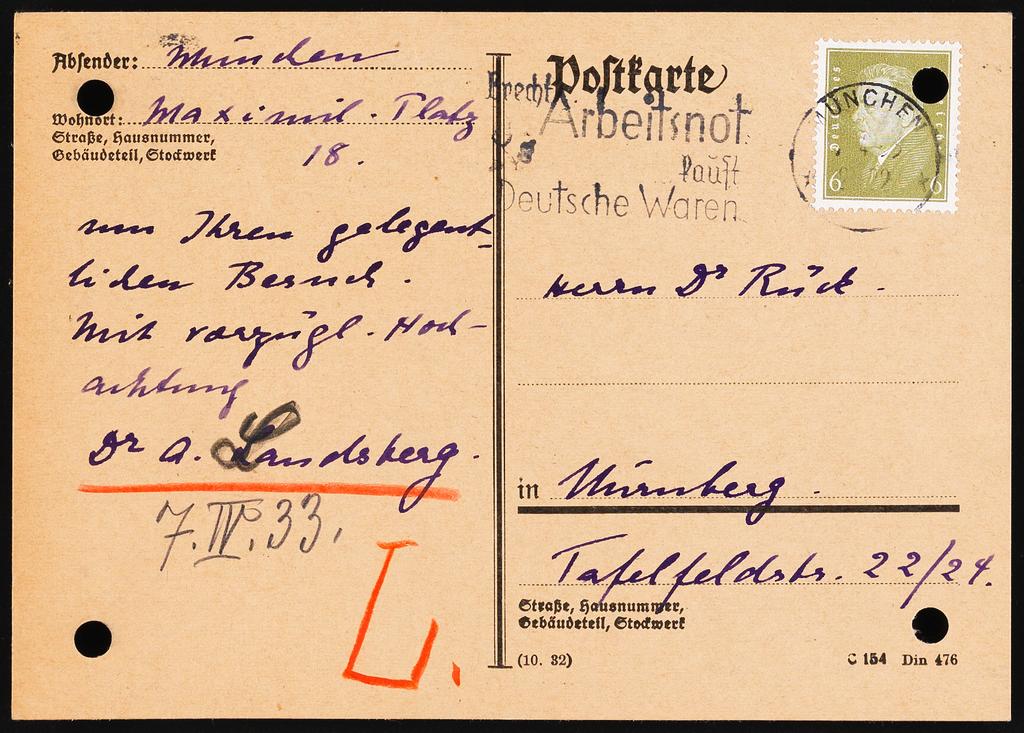 Absender: München
Wohnort: Maximil. Platz
Straße, Hausnummer,
Gebäudeteil, Stockwerk
18.
um Ihren gelegent-
lichen Besuch.
Mit vorzügl. Hoch-
achtung
Dr A. Landsberg.
7.IV.33.
L.
Postkarte
Brecht
Arbeitsnot
kauft
Deutsche Waren
Deutsches Reich
MÜNCHEN
6 6
Herrn Dr Rück.
in Nürnberg.
Tafelfeldstr. 22/24.
Straße, Hausnummer,
Gebäudeteil, Stockwerk
(10. 32)
C 154 Din 476